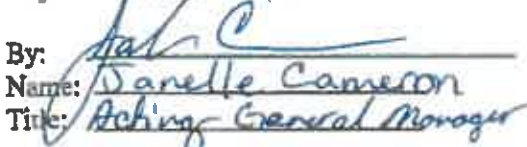 By:
Name: Janelle Cameron
Title: Acting General Manager